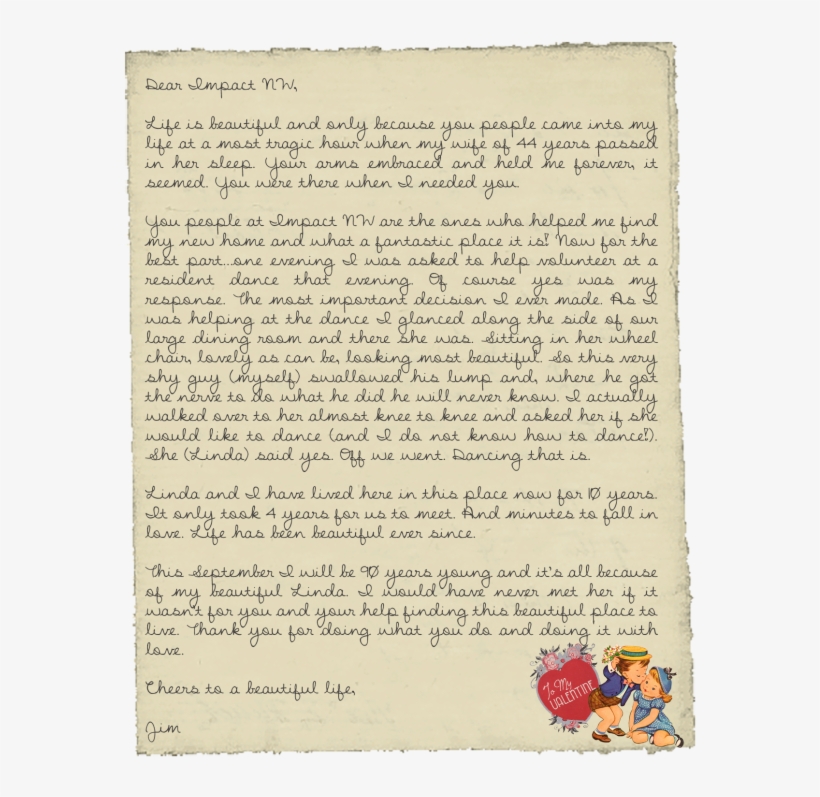 Dear Impact NW,
Life is beautiful and only because you people came into my
life at a most tragic hour when my wife of 44 years passed
in her sleep. Your arms embraced and held me forever, it
seemed. You were there when I needed you.
You people at Impact NW are the ones who helped me find
my new home and what a fantastic place it is! Now for the
best part...one evening I was asked to help volunteer at a
resident dance that evening. Of course yes was my
response. The most important decision I ever made. As I
was helping at the dance I glanced along the side of our
large dining room and there she was. Sitting in her wheel
chair, lovely as can be, looking most beautiful. So this very
shy guy (myself) swallowed his lump and, where he got
the nerve to do what he did he will never know. I actually
walked over to her almost knee to knee and asked her if she
would like to dance (and I do not know how to dance!).
She (Linda) said yes. Off we went. Dancing that is.
Linda and I have lived here in this place now for 10 years.
It only took 4 years for us to meet. And minutes to fall in
love. Life has been beautiful ever since.
This September I will be 90 years young and it's all because
of my beautiful Linda. I would have never met her if it
wasn't for you and your help finding this beautiful place to
live. Thank you for doing what you do and doing it with
love.
Cheers to a beautiful life,
Jim
To My
VALENTINE